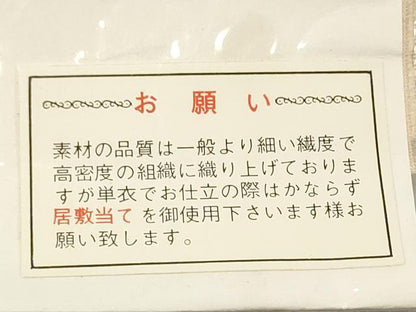 お願い
素材の品質は一般より細い繊度で
高密度の組織に織り上げておりま
すが単衣でお仕立の際はかならず
居敷当てを御使用下さいます様お
願い致します。